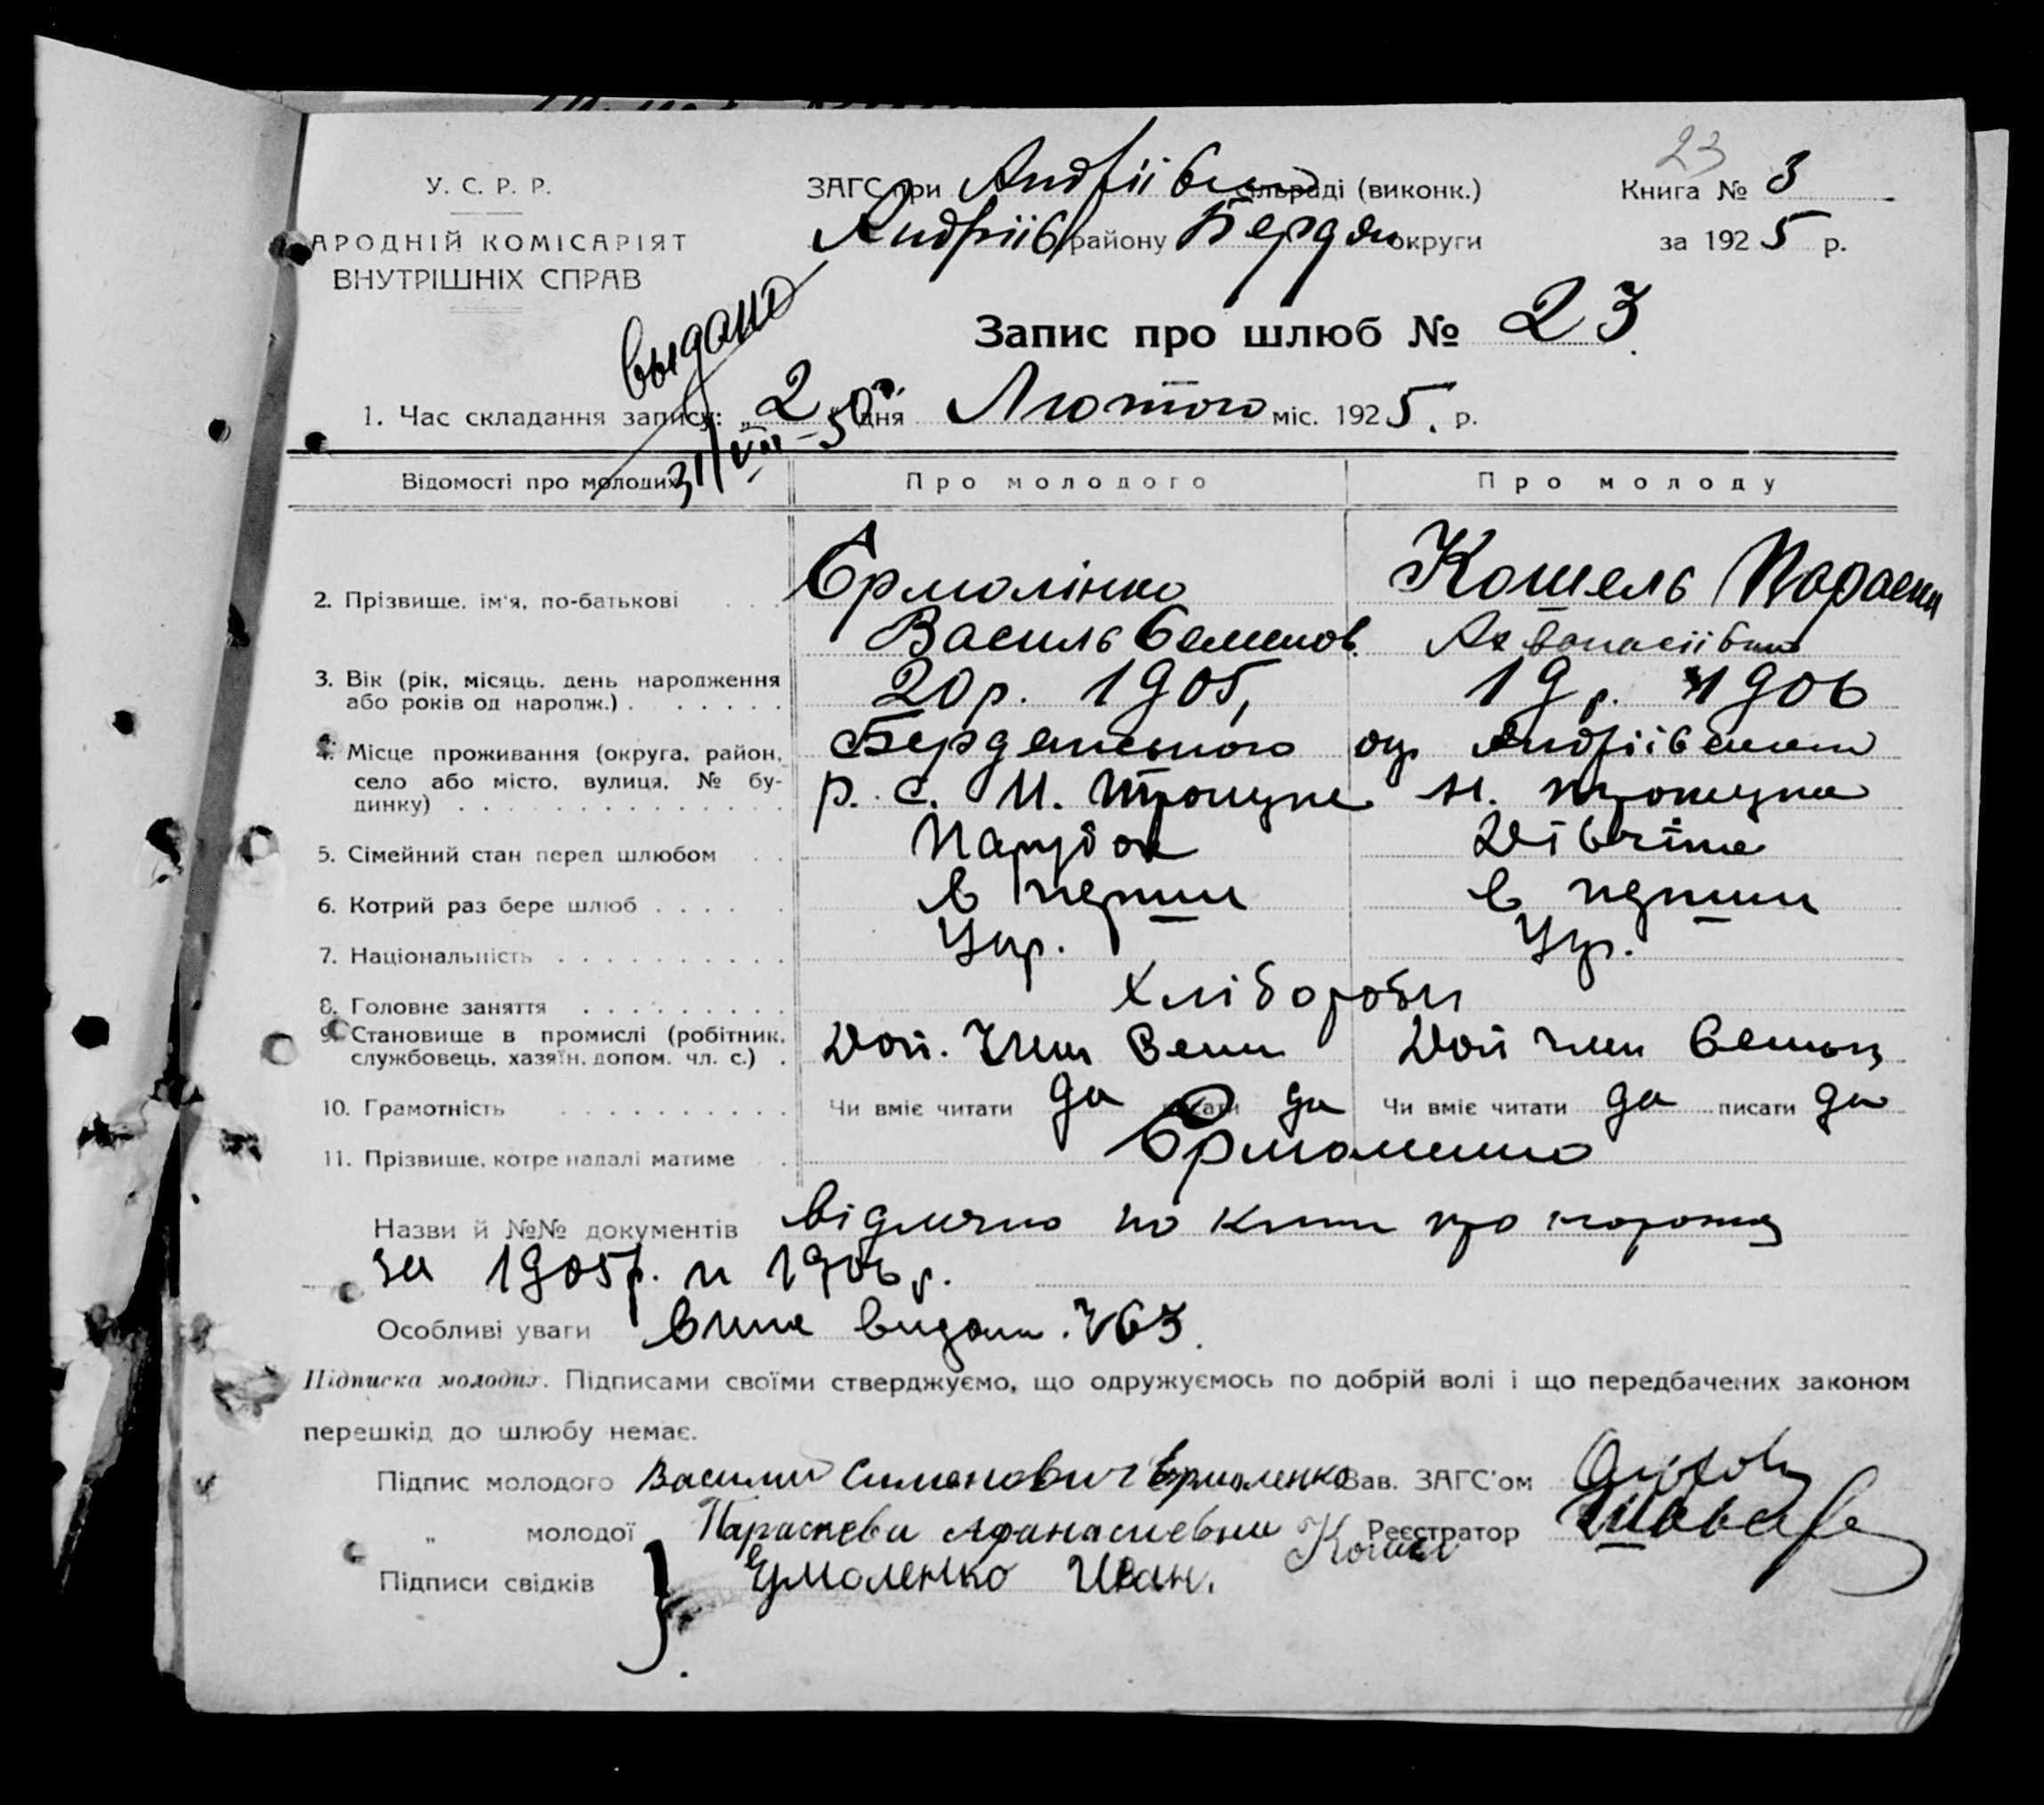 23
У. С. Р. Р.
ЗАГС при Андріївськ сільраді (виконк.)
Книга № 3
АРОДНІЙ КОМІСАРІЯТ
Андріїв району Бердян округи
за 1925 р.
ВНУТРІШНІХ СПРАВ
выдано
31/VIII-50г.
Запис про шлюб № 23
1. Час складання запису: „2" дня Лютого міс. 1925. р.
Відомості про молодих
Про молодого
Про молоду
2. Прізвище, ім'я, по-батькові
Єрмолінко
Кошель Параски
Василь Семенов.
3. Вік (рік, місяць, день народження або років од народж.)
20 р. 1905,
19 р. 1906
4. Місце проживання (округа, район, село або місто, вулиця, № будинку)
Бердянського ог Андріївського
р. с. Н. Троицке Н. Троицке
5. Сімейний стан перед шлюбом
Парубок
Дівчина
6. Котрий раз бере шлюб
в перши
в перши
7. Національність
Укр.
Укр.
8. Головне заняття
Хлібороби
9. Становище в промислі (робітник, службовець, хазяїн, допом. чл. с.)
член
член
10. Грамотність
Чи вміє читати да писати да
Чи вміє читати да писати да
11. Прізвище, котре надалі матиме
Єрмоленко
Назви й №№ документів відмічено по книзі про
за 1905р. и 1906 р.
Особливі уваги 763.
Підписка молодих. Підписами своїми стверджуємо, що одружуємось по добрій волі і що передбачених законом
перешкід до шлюбу немає.
Підпис молодого Василий Симонович Ермоленко Зав. ЗАГС'ом
„ молодої Параскева Афанасиевна Кошел Реєстратор
Підписи свідків } Ермоленко Иван.